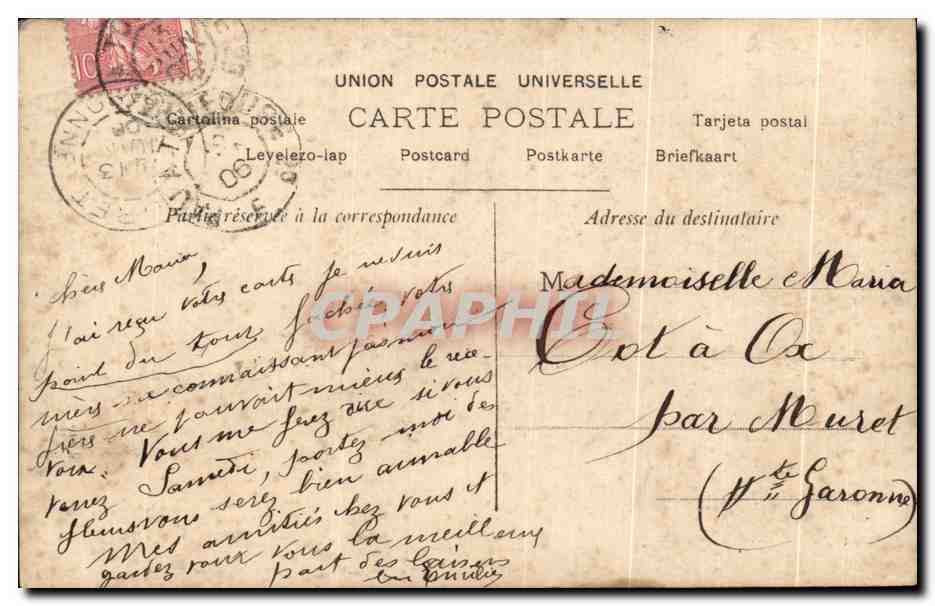 10
UNION POSTALE UNIVERSELLE
CARTE POSTALE
Cartolina postale
Tarjeta postal
Levelezo-lap Postcard Postkarte Briefkaart
Partie réservée à la correspondance
Adresse du destinataire
chère Maria,
J'ai reçu votre carte je ne suis
point du tout fachée votre
ne connaissant pas mon
frère ne pouvait mieux le rece-
voir. Vous me ferez dire si vous
venez Samedi, portez moi des
fleurs vous serez bien aimable
Mes amitiés chez vous et
gardez pour vous la meilleure
part des baisers
Mademoiselle Maria
Cot à Ox
par Muret
(Hte Garonne)
CPAPHIL